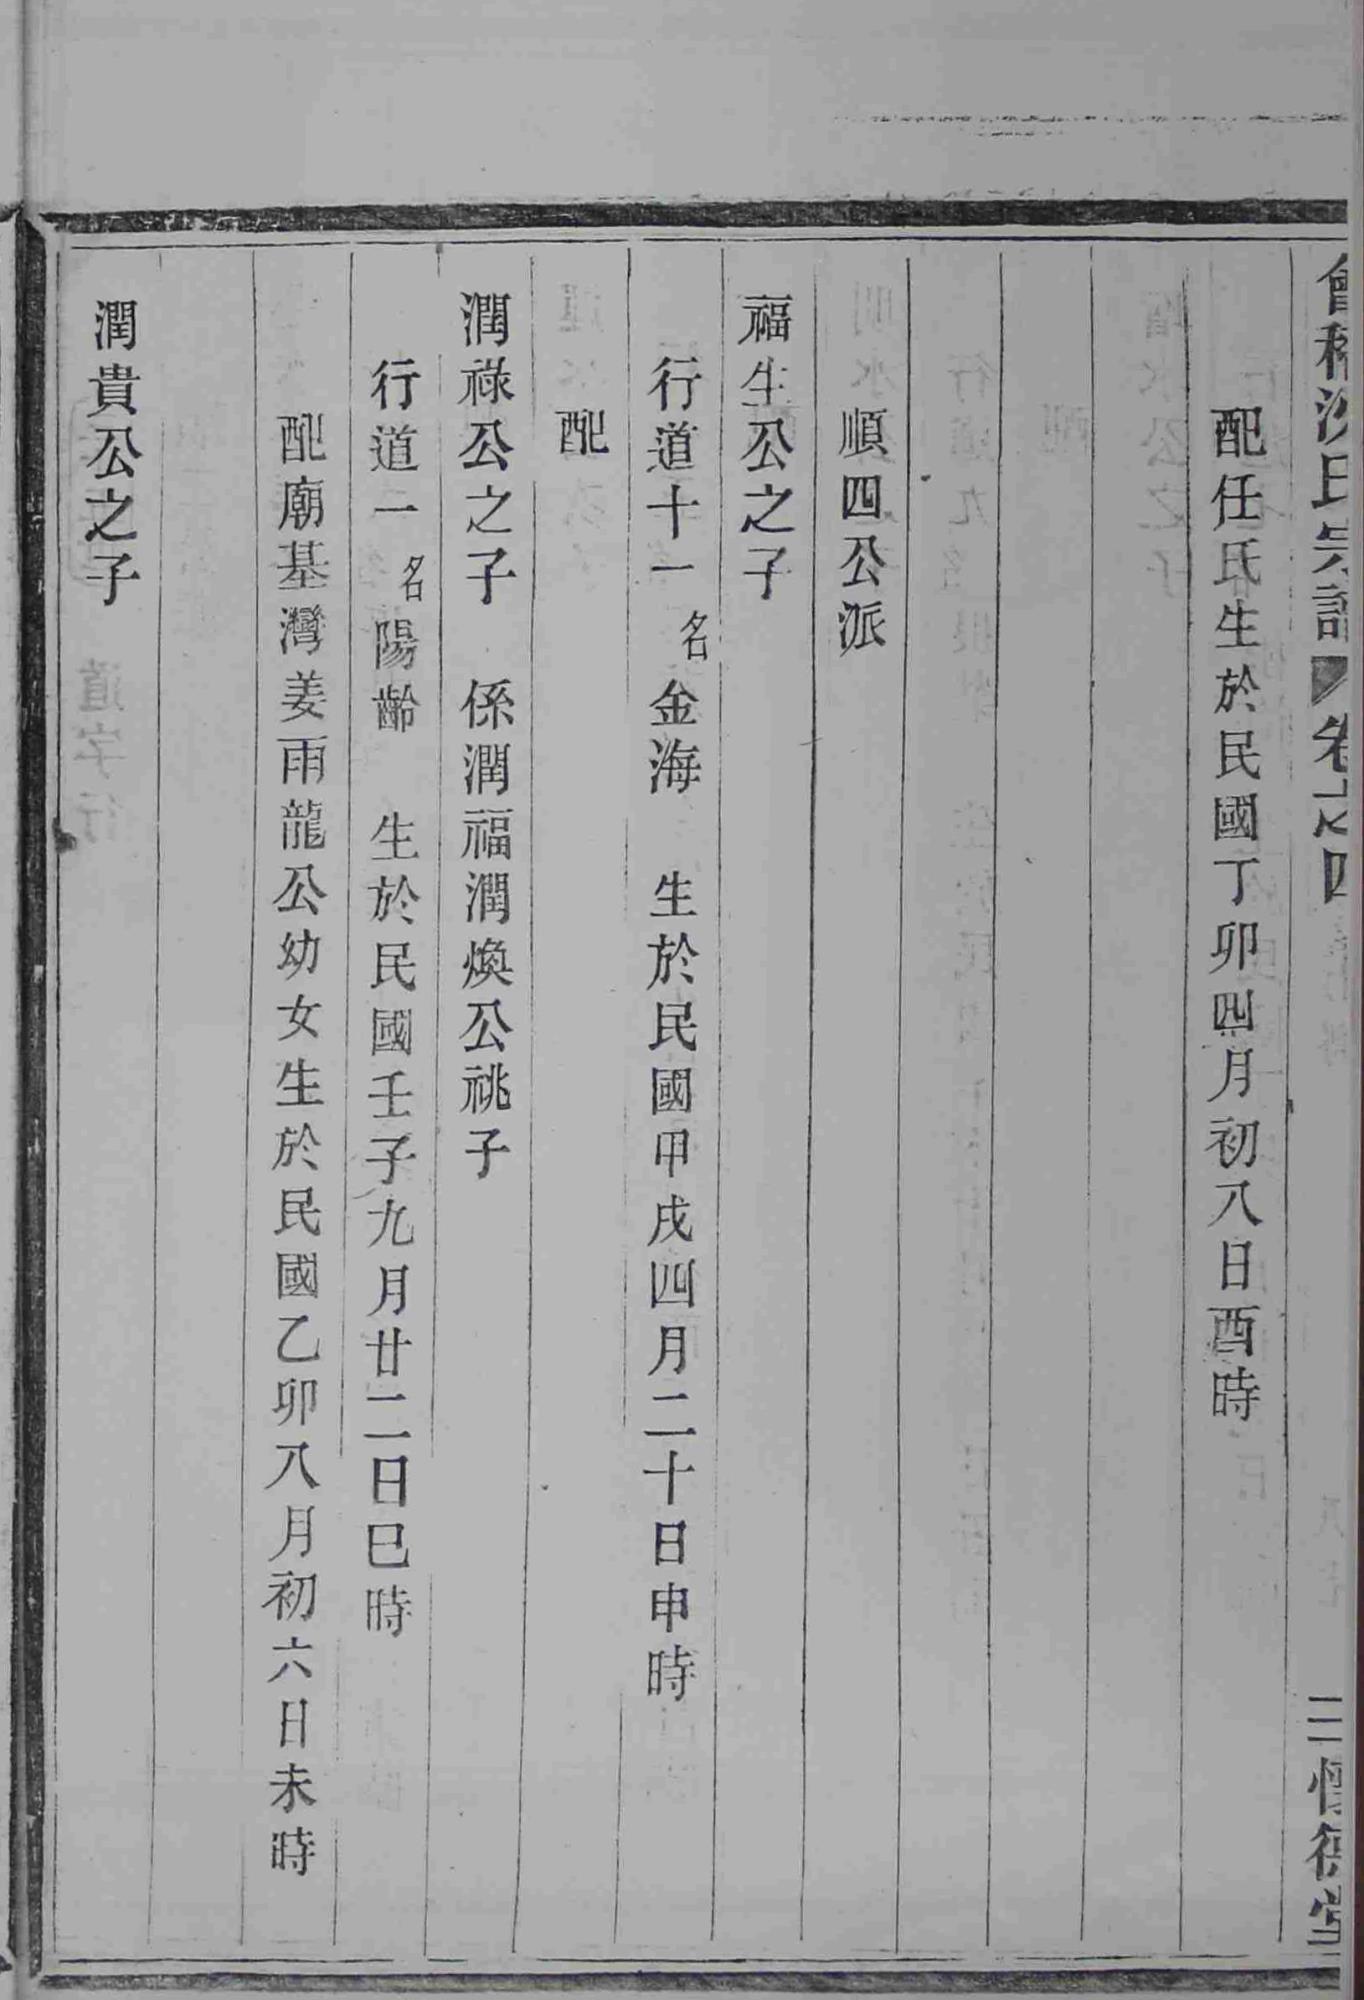 會稽沈氏宗譜 卷之四 二 懷德堂
配任氏生於民國丁卯四月初八日酉時
順四公派
福生公之子
行道十一名金海 生於民國甲戌四月二十日申時
配
潤祿公之子 係潤福潤煥公祧子
行道一名陽齡 生於民國壬子九月廿二日巳時
配廟基灣姜雨龍公幼女生於民國乙卯八月初六日未時
潤貴公之子